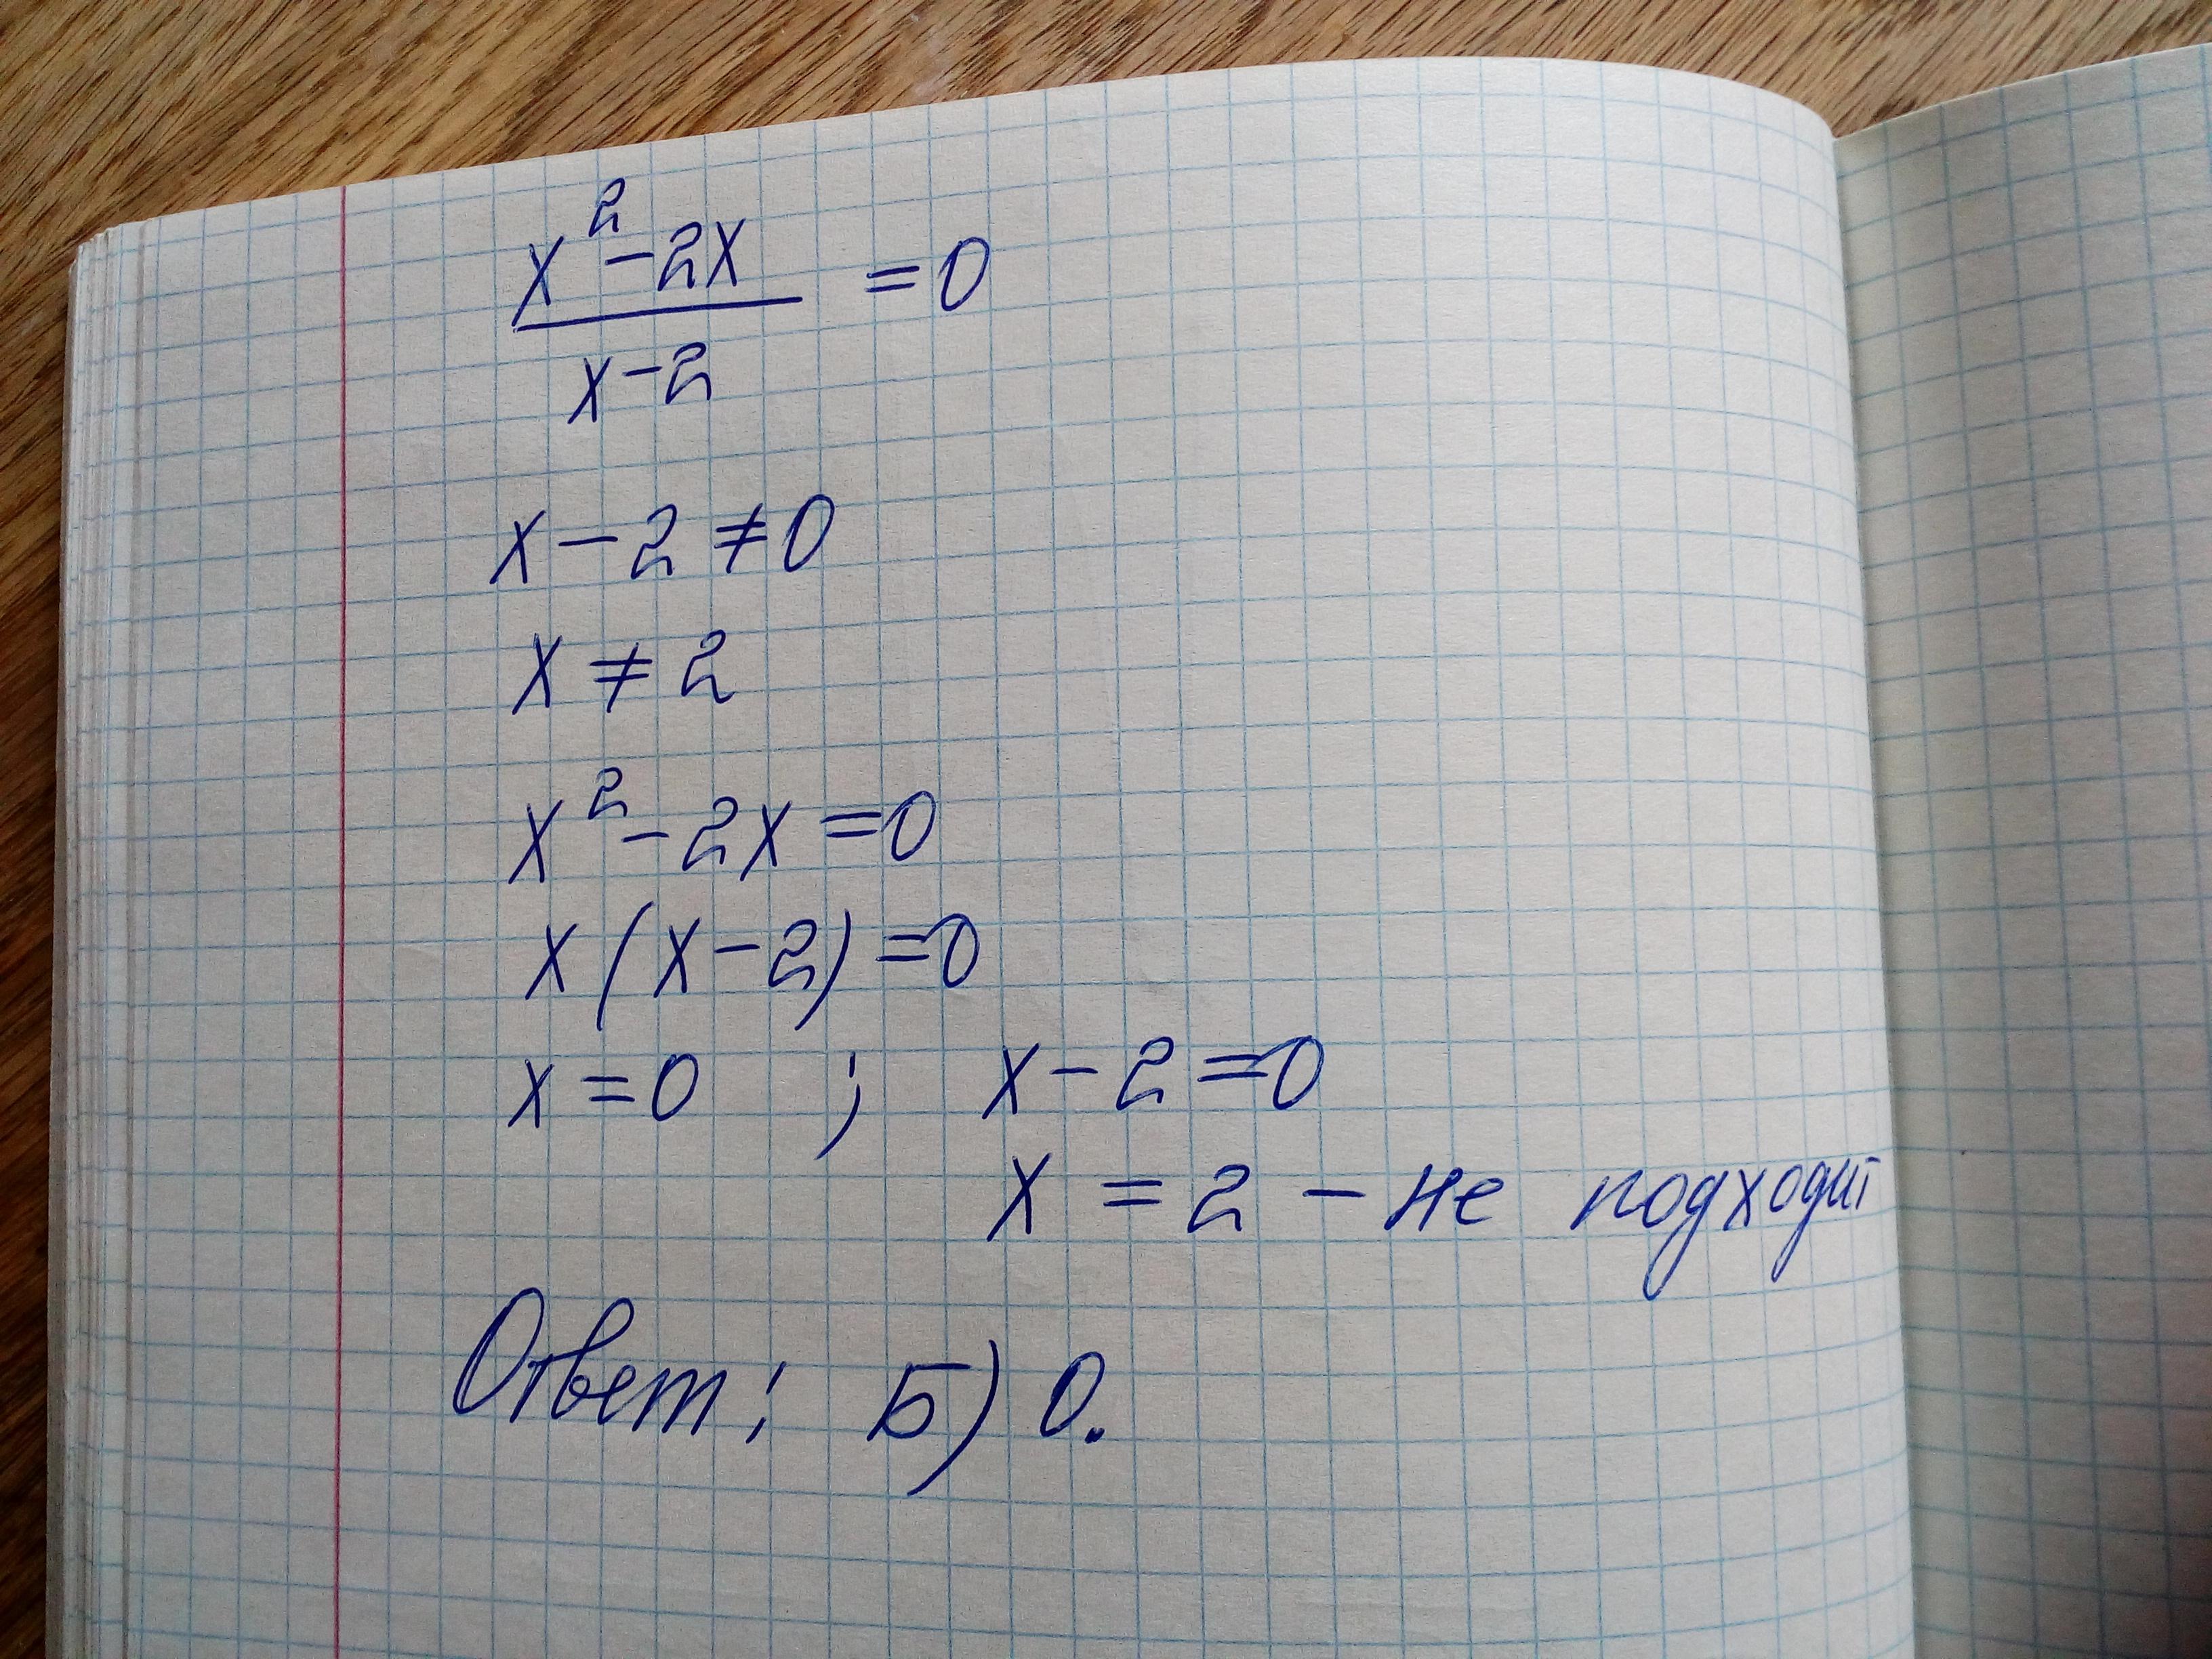 x² - 2x
x - 2
= 0
x - 2 ≠ 0
x ≠ 2
x² - 2x = 0
x(x - 2) = 0
x = 0 ; x - 2 = 0
x = 2 - не подходит
Ответ: Б) 0.